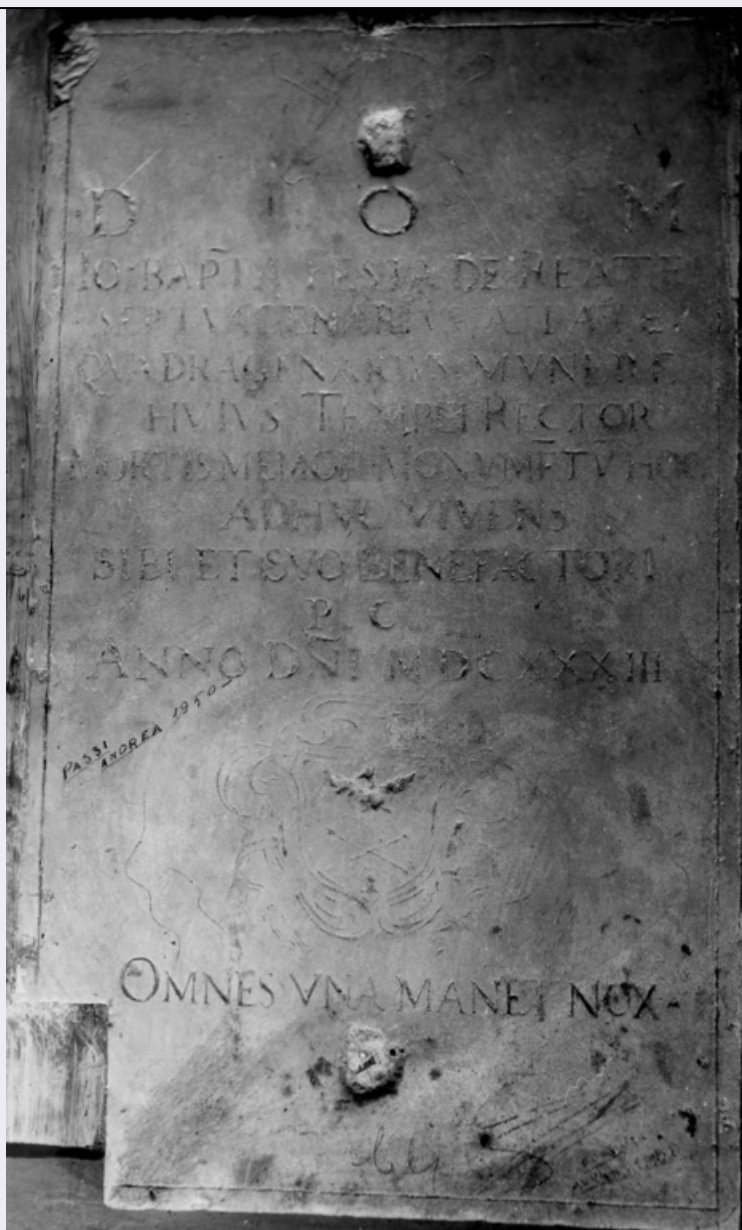 D O M
IO·BAP̄TA TESTA DE REATE
SEPTVAGENARIVS ÆTATE
QVADRAGENARIVS MVNERE
HVIVS TEMPLI RECTOR
MORTIS MEMOR MONVMĒTV̄ HOC
ADHVC VIVENS
SIBI ET SVO BENEFACTORI
P. C.
ANNO DN̄I M DCXXXIII
PASSI
ANDREA 1950
OMNES VNA MANET NOX-